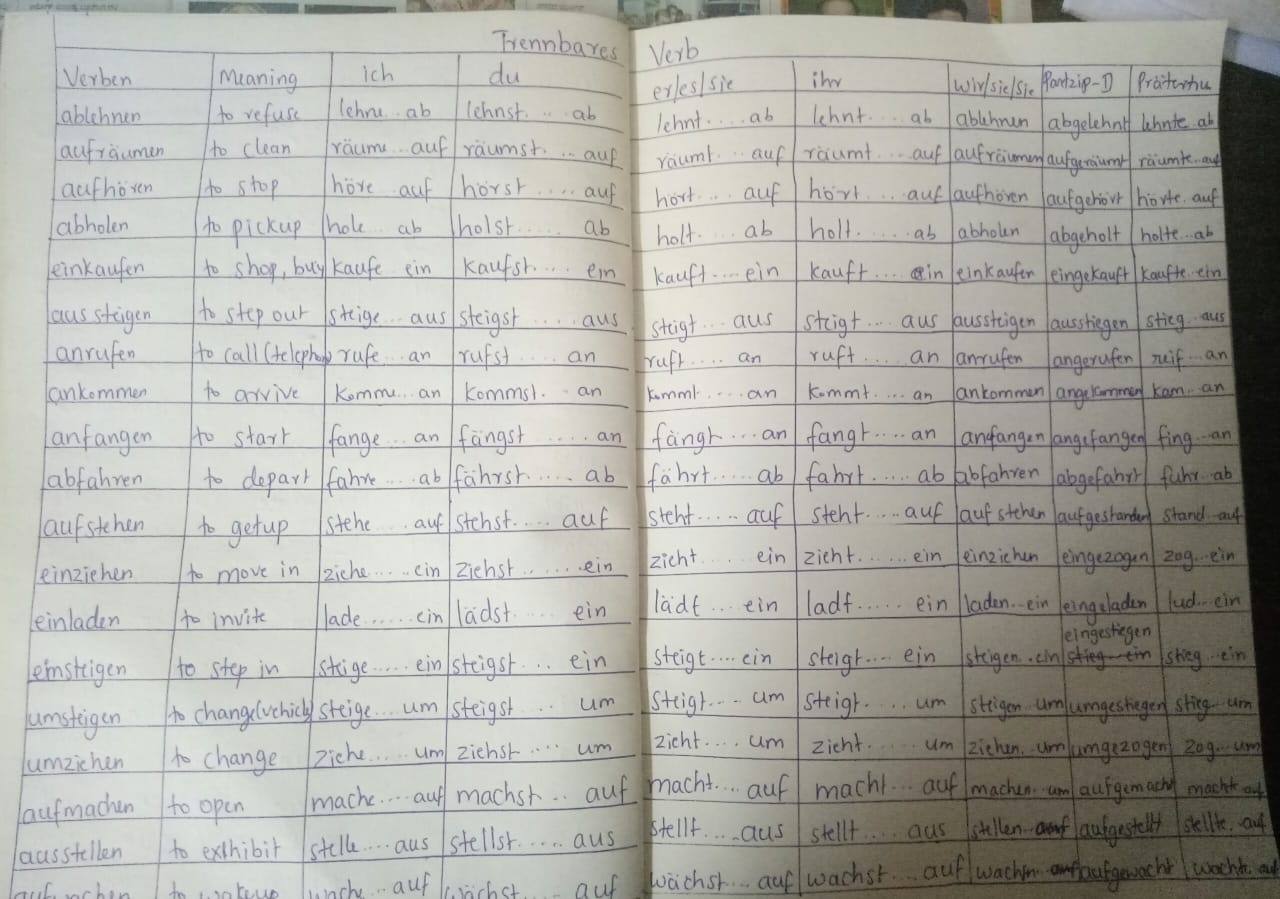 Trennbares Verb
Verben Meaning ich du er/es/sie ihr wir/sie/Sie
ablehnen to refuse lehne ab lehnst.... ab lehnt.... ab lehnt.... ab ablehnen abgelehnt lehnte ab
aufräumen to clean räume.. auf räumst... auf räumt... auf räumt... auf aufräumen aufgeräumt räumte.. auf
aufhören to stop höre auf hörst.... auf hört.... auf hört.... auf aufhören aufgehört hörte. auf
abholen to pickup hole.. ab holst..... ab holt.... ab holt..... ab abholen abgeholt holte.. ab
einkaufen to shop, buy kaufe ein kaufst.... ein kauft.... ein kauft.... ein einkaufen eingekauft kaufte.. ein
aussteigen to step out steige... aus steigst.... aus steigt... aus steigt.... aus aussteigen ausstiegen stieg... aus
anrufen to call (telephon) rufe... an rufst.... an ruft..... an ruft..... an anrufen angerufen reif... an
ankommen to arrive komme... an kommst.. an kommt..... an kommt.... an ankommen angekommen kam... an
anfangen to start fange... an fängst..... an fängt.... an fangt.... an anfangen angefangen fing... an
abfahren to depart fahre... ab fährst..... ab fährt..... ab fahrt..... ab abfahren abgefahrt fuhr.. ab
aufstehen to getup stehe ... auf stehst..... auf steht..... auf steht.... auf aufstehen aufgestanden stand.. auf
einziehen to move in ziehe..... ein ziehst ...... ein zieht ... ein zieht....... ein einziehen eingezogen zog... ein
einladen to invite lade...... ein lädst..... ein lädt... ein ladt..... ein laden... ein eingeladen lud... ein
einsteigen to step in steige..... ein steigst... ein steigt.... ein steigt.... ein steigen.. ein eingestiegen stieg ein stieg... ein
umsteigen to change(vehicle) steige... um steigst... um steigt.... um steigt..... um steigen um umgestiegen stieg... um
umziehen to change ziehe..... um ziehst .... um zieht.... um zieht...... um ziehen.. um umgezogen zog... um
aufmachen to open mache.... auf machst.. auf macht.... auf macht... auf machen.. um aufgemacht
ausstellen to exthibit stelle.... aus stellst..... aus stellt.... aus stellt.... aus stellen aufgestellt stellte. auf
to wakeup wache... auf wächst.... auf wächst... auf wachst... auf aufgewacht